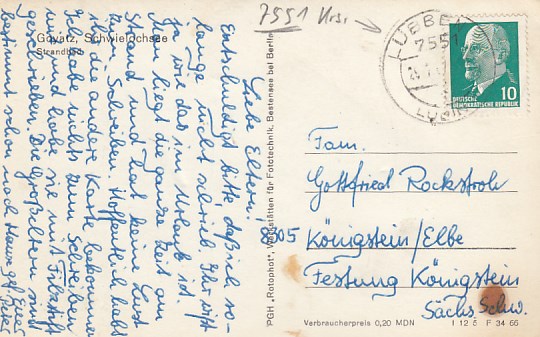 7551 Urs.
Goyatz, Schwielochsee
Strandbad
Liebe Eltern!
Entschuldigt bitte, daß ich so-
lange nicht schrieb. Ihr wißt
ja wie das im Urlaub ist.
Man liegt die ganze Zeit am
Strand und hat keine Lust
zum Schreiben. Hoffentlich habt
Ihr die andere Karte bekommen.
Ich habe nichts zum Schreiben
mit und habe sie mit Filzstift
geschrieben. Die Großeltern sind
bestimmt schon nach Hause gef.
Euer
PGH „Rotophot", Werkstätten für Fototechnik, Bestensee bei Berlin
LÜBBEN
7551
LÜBBEN
DEUTSCHE
DEMOKRATISCHE REPUBLIK
10
Fam.
Gottfried Rockstroh
8305
Königstein/Elbe
Festung Königstein
Sächs. Schw.
Verbraucherpreis 0,20 MDN
I 12 5 F 34 66